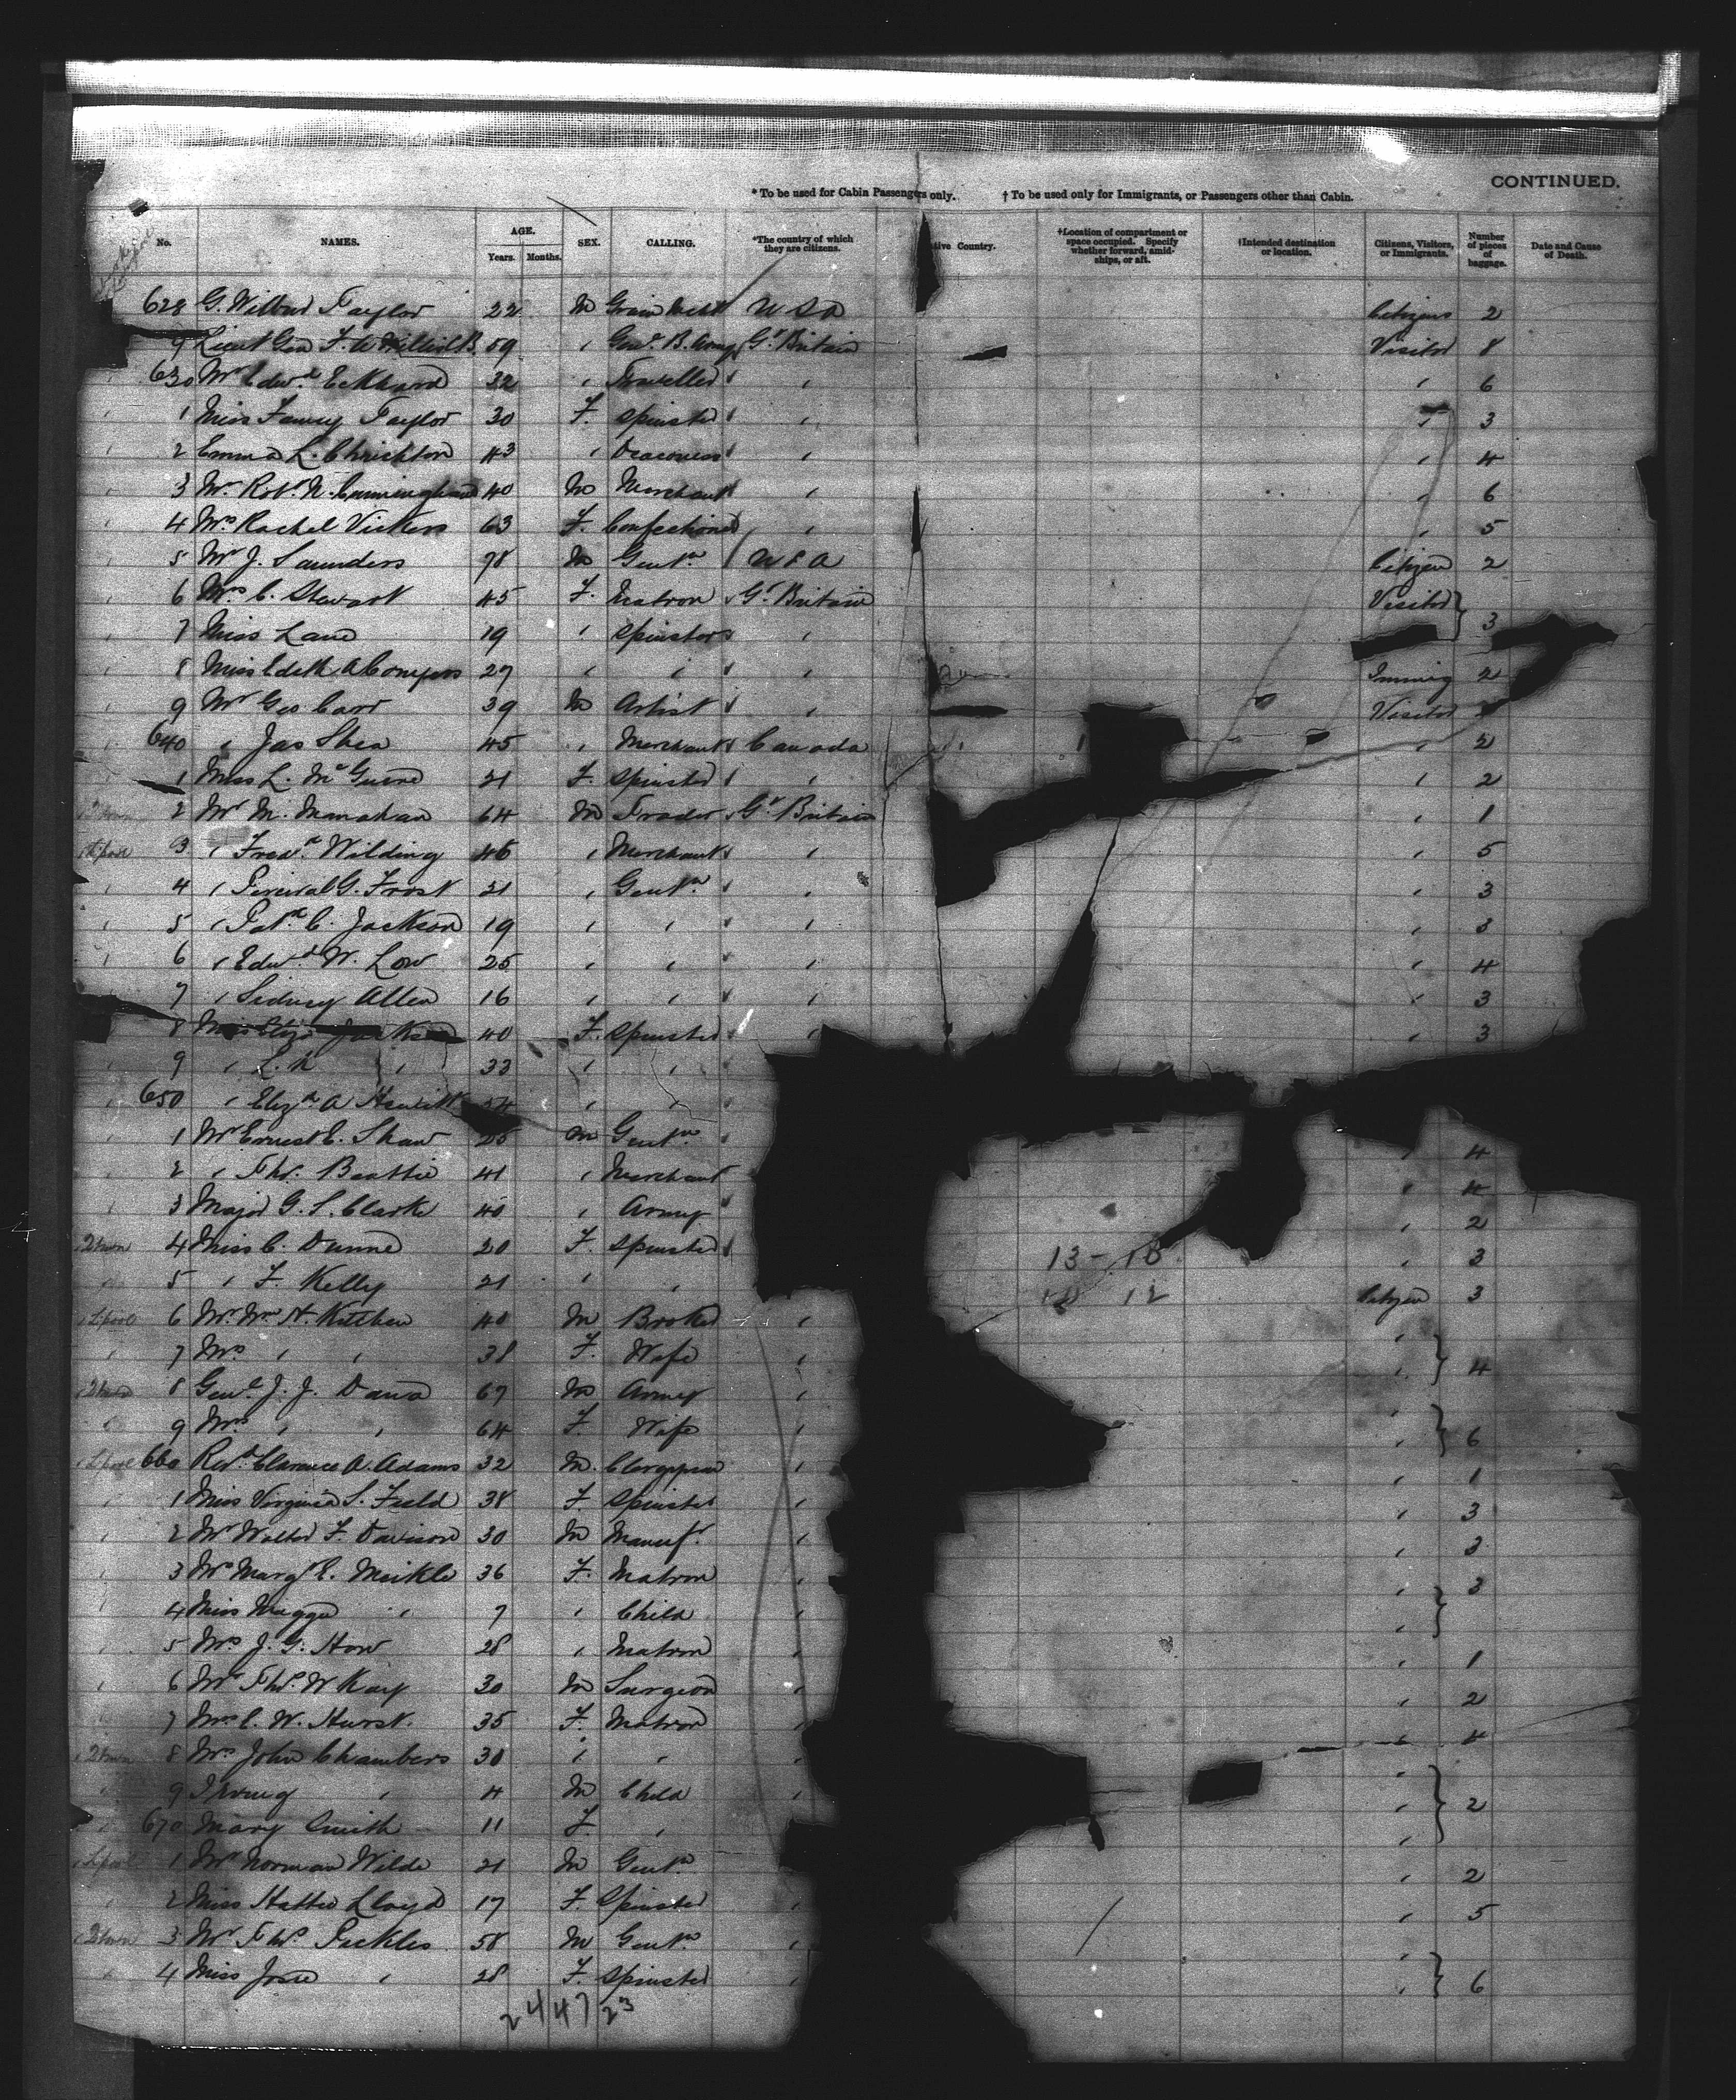 CONTINUED.
* To be used for Cabin Passengers only. † To be used only for Immigrants, or Passengers other than Cabin.
No. NAMES. AGE. Years. Months. SEX. CALLING. *The country of which they are citizens. tive Country. †Location of compartment or space occupied. Specify whether forward, amidships, or aft. †Intended destination or location. Citizens, Visitors, or Immigrants. Number of pieces of baggage. Date and Cause of Death.
628 G. Wilbur Taylor 22 M Grain Mcht U S A Citizens 2
9 Lieut Gen F. A 59 " Genl. B. Army Gt. Britain Visitor 8
630 Mr Edwd. Eckhard 32 " Traveller " " 6
1 Miss Fanny Taylor 30 F. Spinster " " 3
2 Emma L. Chrichton 43 " Deaconess " " 4
3 Mr. Robt. N. Cunningham 40 M Merchant " " 6
4 Mrs Rachel Vickers 63 F. Confectioner " " 5
5 Mr J. Saunders 78 M Gentn U S A Citizen 2
6 Mrs C. Stewart 45 F. Matron Gt Britain Visitor
7 Miss Lane 19 " Spinsters " 3
8 Miss Edith A Conyers 27 " " " Immig 2
9 Mr Geo Carr 39 M Artist " Visitor
640 " Jas Shea 45 " Merchant Canada " 2
1 Miss L. McGuire 21 F. Spinster " " 2
2 Mr M. Manahan 64 M Trader Gt Britain " 1
L'pool 3 " Fredk. Wilding 46 " Merchant " " 5
4 " Percival G. Frost 21 " Gentn " " 3
5 " Patk C. Jackson 19 " " " " 3
6 " Edwd W. Low 25 " " " " 4
7 " Sidney Allen 16 " " " " 3
8 Miss Jackson 40 F. Spinster " " 3
9 " L. " 33 " "
650 " Elizh A Hewitt " "
1 Mr Ernest C. Shaw 25 M Gentn " 4
2 " Thos. Beattie 41 " Merchant " 4
3 Major G. S. Clarke 40 " Army " 2
Qtown 4 Miss C. Dunne 20 F. Spinster 13 - 18 " 3
5 " F. Kelly 21 " " 12 Citizen 3
L'pool 6 Mr. Wm H. Kitchen 40 M Broker " "
7 Mrs " " 38 F. Wife " " 4
Qtown 8 Genl. J. J. Dana 67 M Army " "
9 Mrs " " 64 F. Wife " " 6
L'pool 660 Revd. Clarence A. Adams 32 M. Clergyman " " 1
1 Miss Virginia S. Field 38 F. Spinster " " 3
2 Mr Walter F. Davison 30 M Manufr. " " 3
3 Mrs Margt E. Meikle 36 F. Matron " " 3
4 Miss Maggie " 7 " Child " "
5 Mrs J. G. How 28 " Matron " " 1
6 Mr Thos. W Kay 30 M Surgeon " " 2
7 Mrs C. W. Hurst. 35 F. Matron " " 4
Qtown 8 Mrs John Chambers 30 " " " "
9 Irving " 4 M Child " " 2
670 Mary Smith 11 F. " "
L'pool 1 Mr Norman Wilde 21 M Gentn " 2
2 Miss Hattie Lloyd 17 F. Spinster " " 5
Qtown 3 Mr Thos. Pickles 58 M Gentn " "
4 Miss Josie " 28 F. Spinster " " 6
24 47 23